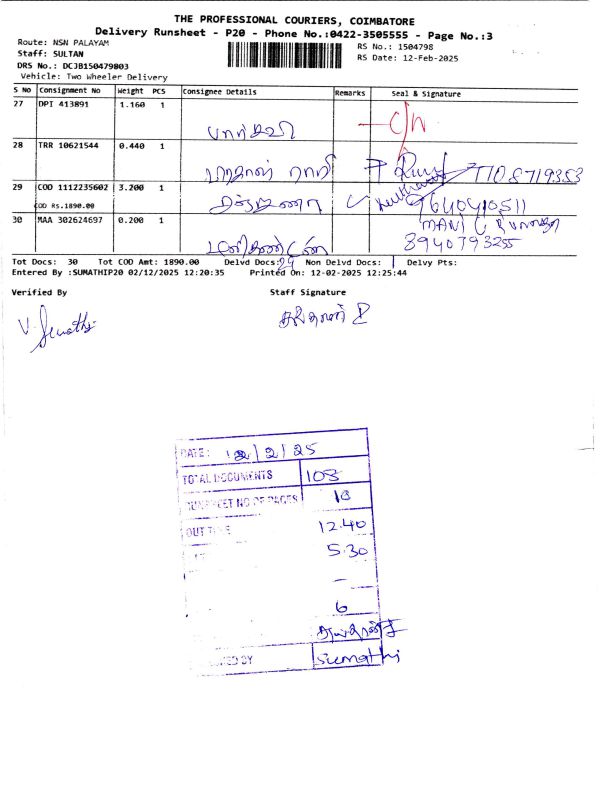 THE PROFESSIONAL COURIERS, COIMBATORE
Delivery Runsheet - P20 - Phone No.:0422-3505555 - Page No.:3
Route: NSN PALAYAM
RS No.: 1504798
Staff: SULTAN
RS Date: 12-Feb-2025
DRS No.: DCJB150479803
Vehicle: Two Wheeler Delivery
S No Consignment No Weight PCS Consignee Details Remarks Seal & Signature
27 DPI 413891 1.160 1 பார்கவி C/N
28 TRR 10621544 0.440 1
29 COD 1112235602 3.200 1 9640410511
COD Rs.1890.00
MANI
30 MAA 302624697 0.200 1 மணிகண்டன் 8940793255
Tot Docs: 30 Tot COD Amt: 1890.00 Delvd Docs: 29 Non Delvd Docs: 1 Delvy Pts:
Entered By :SUMATHIP20 02/12/2025 12:20:35 Printed On: 12-02-2025 12:25:44
Verified By Staff Signature
V. Sumathi
DATE: 12/2/25
TOTAL DOCUMENTS 103
RUNSHEET NO OF PAGES 10
OUT TIME 12.40
5.30
-
6
Sumathi